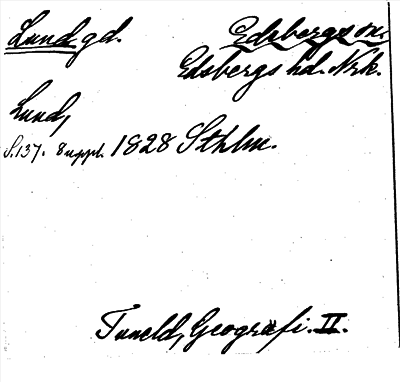 Lund gd. Edsbergs sn.
Edsbergs hd. Nrk.
Lund,
S. 137. 8 uppl. 1828 Sthlm.
Tuneld, Geografi. II.